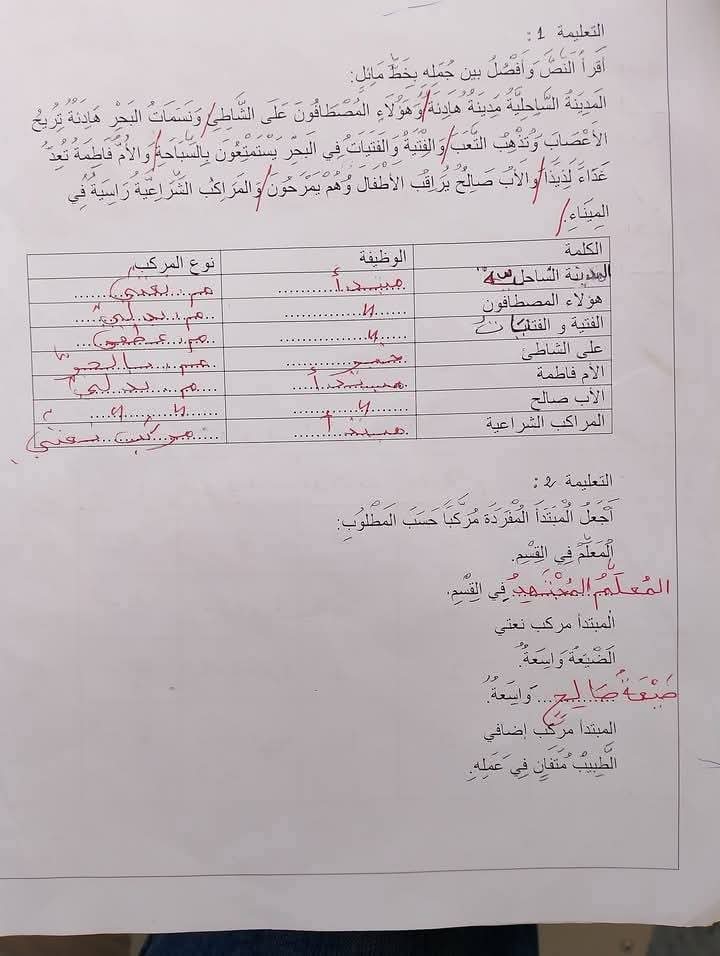 التعليمة 1 :
أَقْرَأُ النَصَّ وَأَفْصُلُ بين جُمَلِهِ بِخَطٍّ مَائِلٍ:
المَدِينَةُ السَّاحِلِيَّةُ مَدِينَةٌ هَادِئَةٌ/ وَهَؤُلَاءِ المُصْطَافُونَ عَلَى الشَّاطِئِ/ وَنَسَمَاتُ البَحْرِ هَادِئَةٌ تُرِيحُ
الأَعْصَابَ وَتُذْهِبُ التَّعَبَ/ وَالفِتْيَةُ وَالفَتَيَاتُ فِي البَحْرِ يَسْتَمْتِعُونَ بِالسِّبَاحَةِ/ وَالأُمُّ فَاطِمَةُ تُعِدُّ
غَدَاءً لَذِيذًا/ وَالأَبُ صَالِحٌ يُرَاقِبُ الأَطْفَالَ وَهُمْ يَمْرَحُونَ/ وَالمَرَاكِبُ الشِّرَاعِيَّةُ رَاسِيَةٌ فِي
المِينَاءِ./
الكلمة الوظيفة نوع المركب
المدينة الساحلية مبتدأ م. نعتي
هؤلاء المصطافون // م. بدلي
الفتية و الفتيات // م. عطفي
على الشاطئ خبر م. بالجر
الأم فاطمة مبتدأ م. بدلي
الأب صالح // // //
المراكب الشراعية مبتدأ مركب نعتي
التعليمة 2 :
أَجْعَلُ الْمُبْتَدَأَ الْمُفْرَدَةَ مُرَكَّبًا حَسَبَ المَطْلُوبِ:
الْمُعَلِّمُ فِي القِسْمِ.
المُعلِّمُ المُجْتَهِدُ فِي القِسْمِ.
الْمبتدأ مركب نعتي
الضَيْعَةُ وَاسِعَةٌ.
ضَيْعَةُ صَالِحٍ ... وَاسِعَةٌ.
المبتدأ مركب إضافي
الطَّبِيبُ مُتَفَانٍ فِي عَمَلِهِ.